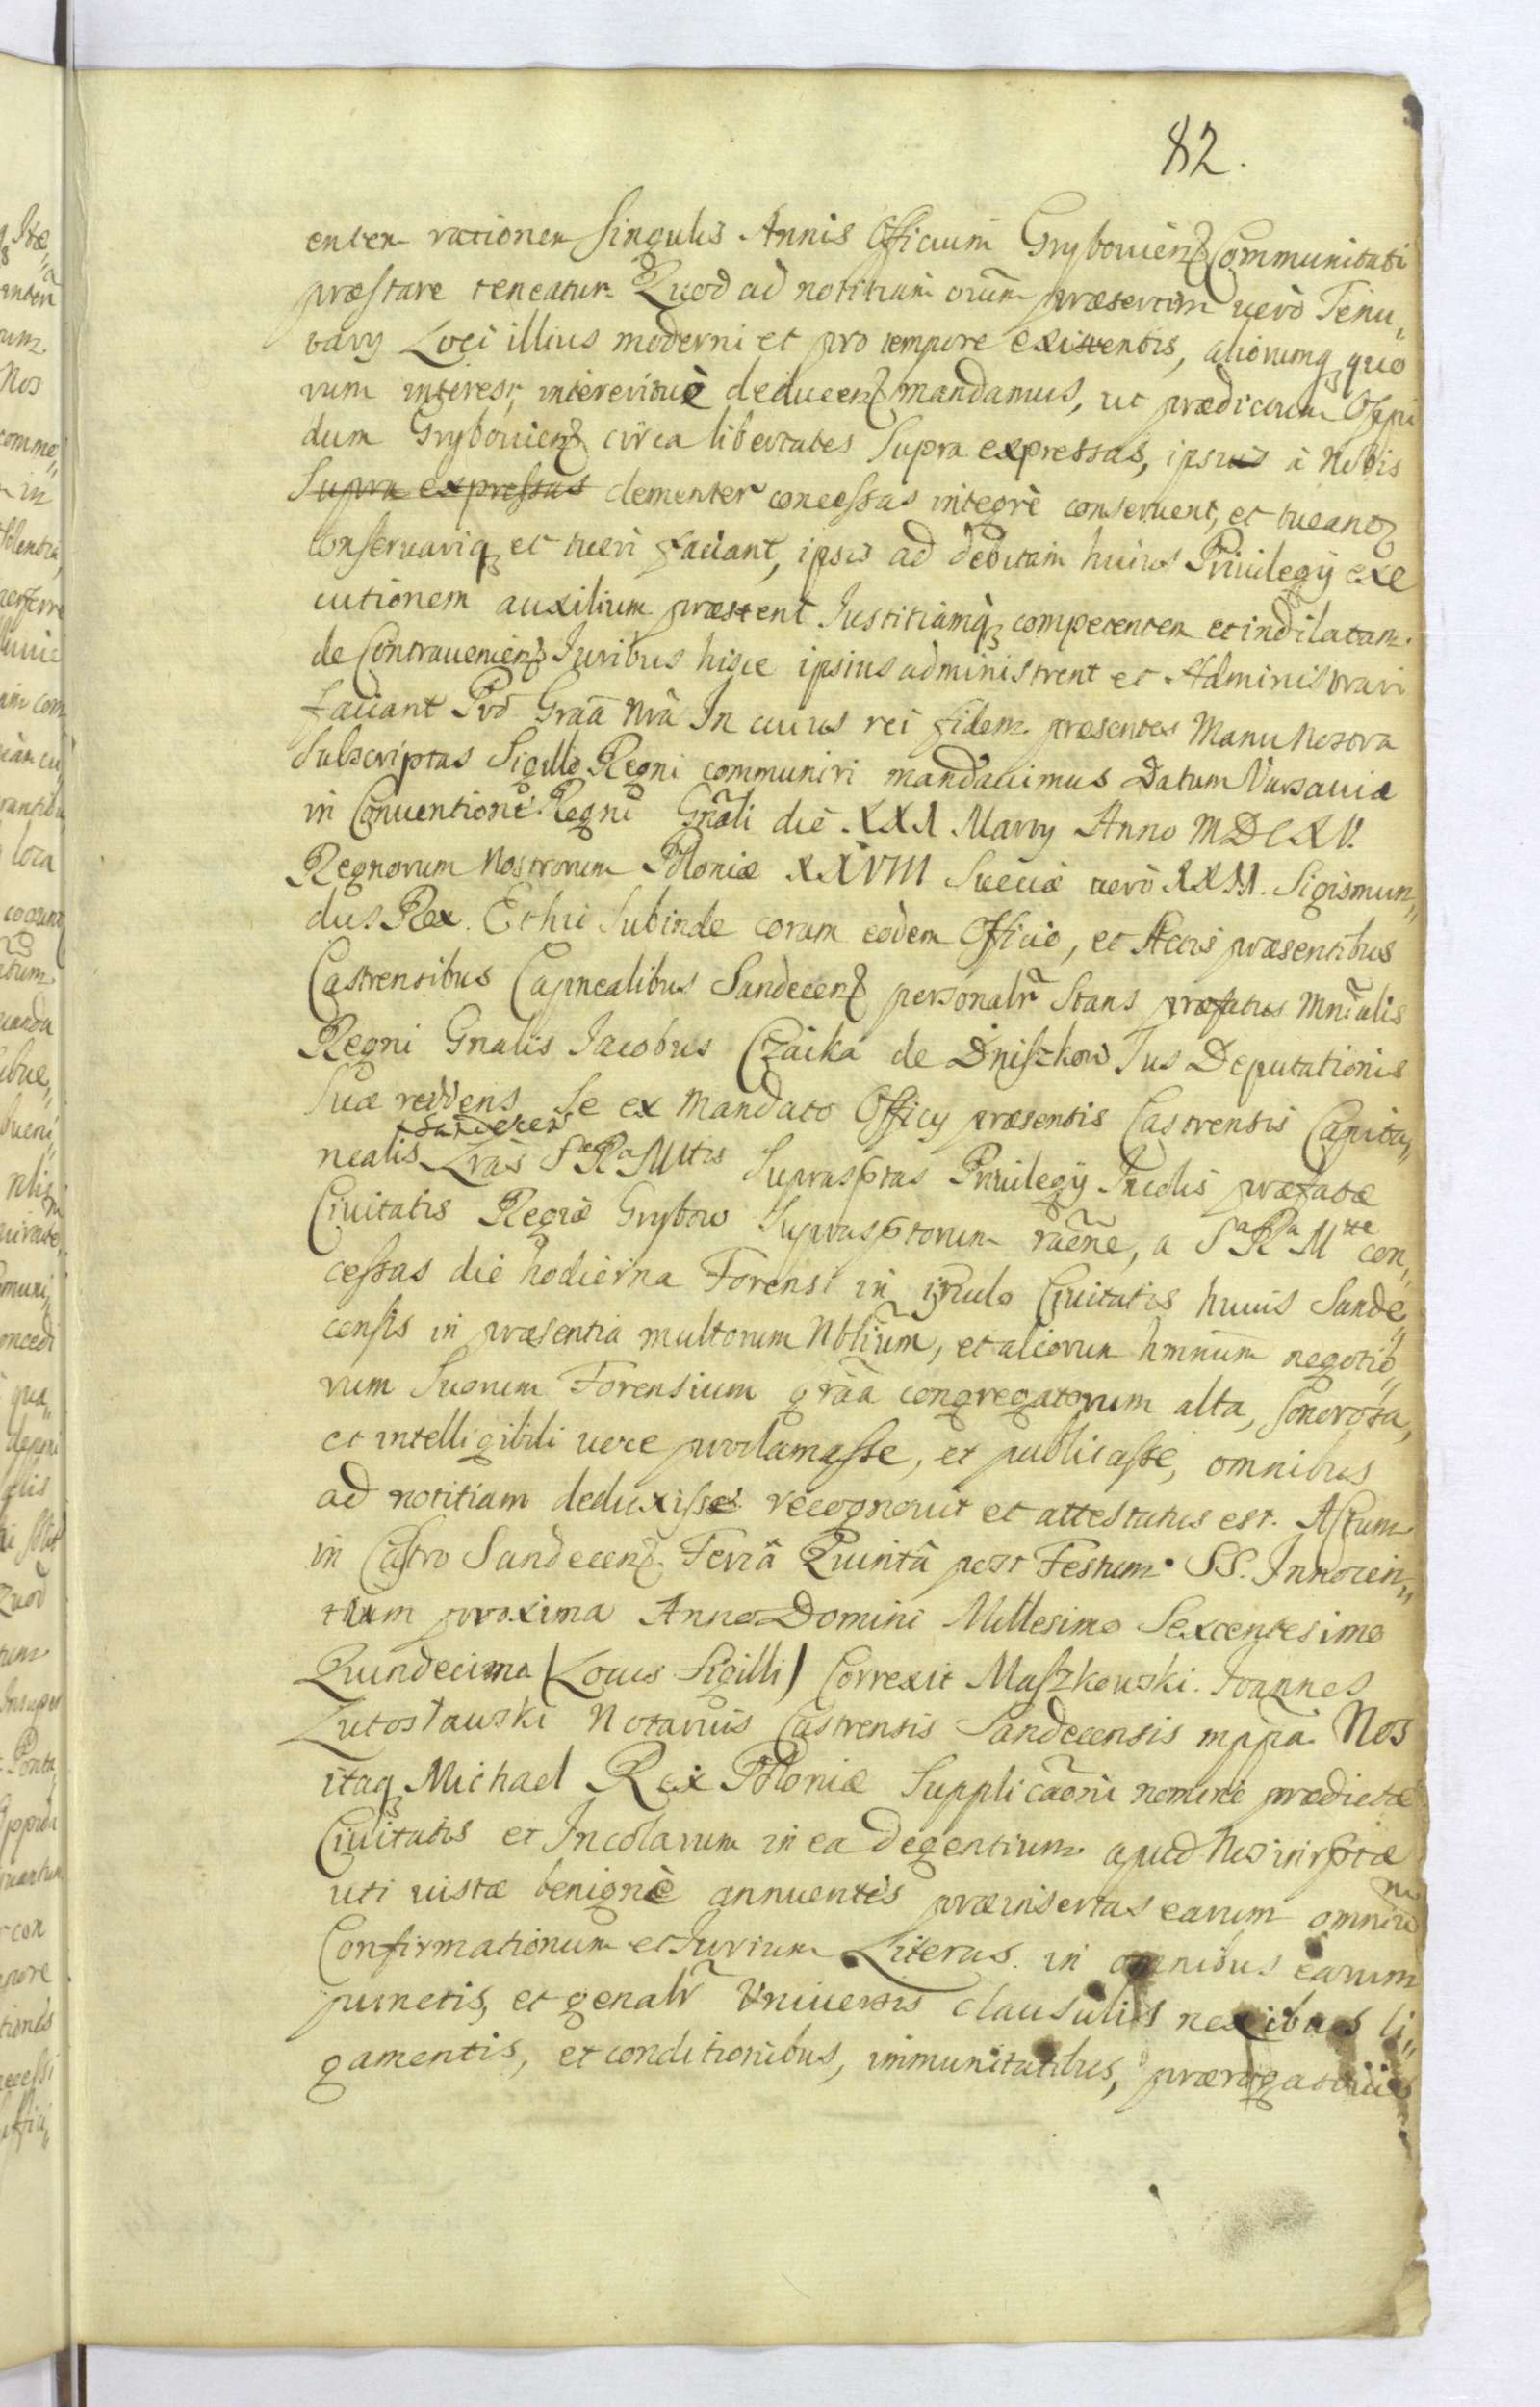 82.
entem rationem singulis Annis Officium Grybouienz Communitati
præstare teneatur. Quod ad notitiam oium præsertim uerò Tenu„
tarij Loci illius moderni et pro tempore existentis, aliorumq; quo
rum interest, intereritue deducenz mandamus, ut prædictum Oppi
dum Grybouienz circa libertates supra expressas, ipsis à Nobis
Supra expressas clementer concessas integrè conseruent, et tueantz
conseruariq; et tueri faciant, ipsis ad debitam huius Priuilegij exe
cutionem auxilium præstent Justitiamq; competentem et indilatam
de Contrauenienz Juribus hisce ipsius administrent et Administrari
faciant Pro Graa Nra In cuius rei fidem presentes Manu Nostra
Subscriptas Sigillo Regni communiri mandauimus Datum Varsauiæ
in Conuentione Regni Gnali die XXI Marty Anno MDCXV.
Regnorum Nostrorum Poloniæ XXVIII Sueciæ uerò XXII. Sigismun„
dus Rex. Et hic Subinde coram eodem Officio, et Actis præsentibus
Castrensibus Capnealibus Sandecenz personalr stans præfatus Mnralis
Regni Gnalis Jacobus Czaika de Dniszkow Jus Deputationis
suæ reddens se ex Mandato Officij præsentis Castrensis Capita„
Sandecen
nealis Lras SæRæMttis Suprasptas Priuilegij Incolis præfatæ
Ciuitatis Regiæ Grybow Suprasptorum raene, a SaRaMtte con„
cessas die hodierna Forensi in irculo Ciuitatis huius Sande„
censis in præsentia multorum Nblium, et aliorum hminum negotio„
rum Suorum Forensium graa congregatorum alta, sonorosa,
et intelligibili uoce proclamasse, et publicasse, omnibus
ad notitiam deduxisse recognouit et attestatus est. Actum
in Castro Sandecenz Feria Quinta post Festum SS. Innocen„
tium proxima Anno Domini Millesimo Sexcentesimo
Quindecimo (Locus Sigilli) Correxit Maszkowski. Joannes
Lutosławski Notarius Castrensis Sandecensis mppa. Nos
itaq; Michael Rex Poloniæ Supplicaoni nomine prædictæ
Ciuitatis et Incolarum in ea degentium apud Nos inrptæ
uti iustæ benignè annuentes præinsertas earum omniu
m
Confirmationum et Jurium Literas in omnibus earum
punctis, et genalr Vniuersis clausulis nexibus li„
gamentis, et conditionibus, immunitatibus, prærogatiuis